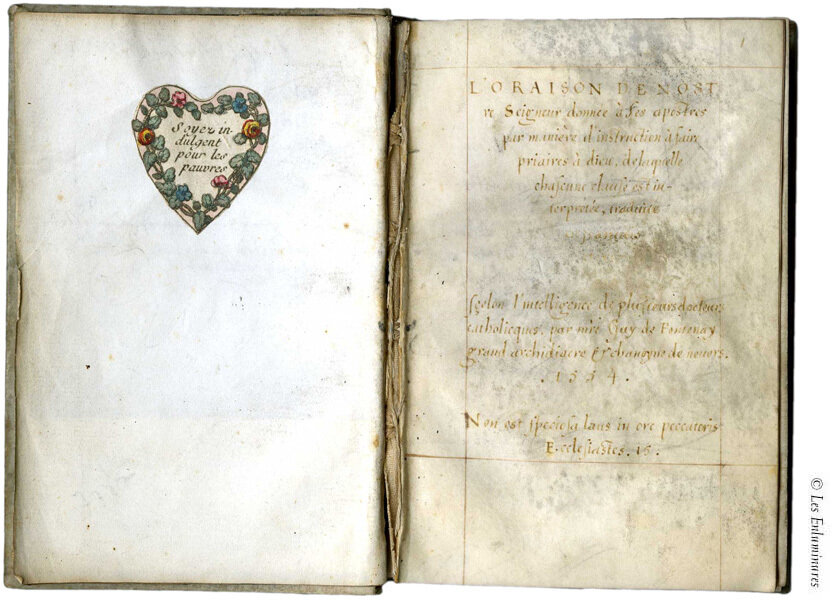 Soyez in-
dulgent
pour les
pauvres
L'ORAISON DE NOST
re Seigneur donnee à ses apostres
par maniere d'instruction à fair
priaires à dieu, de laquelle
chascune clause est in-
terpretée, traduite
Sçelon l'intelligence de plusieurs docteurs
catholicques, par mre Guy de Fontenay
grand archidiacre & chanoyne de nevers.
. 1554 .
Non est speciosa laus in ore peccatoris
Ecclesiastes. 15 .
© Les Enluminures